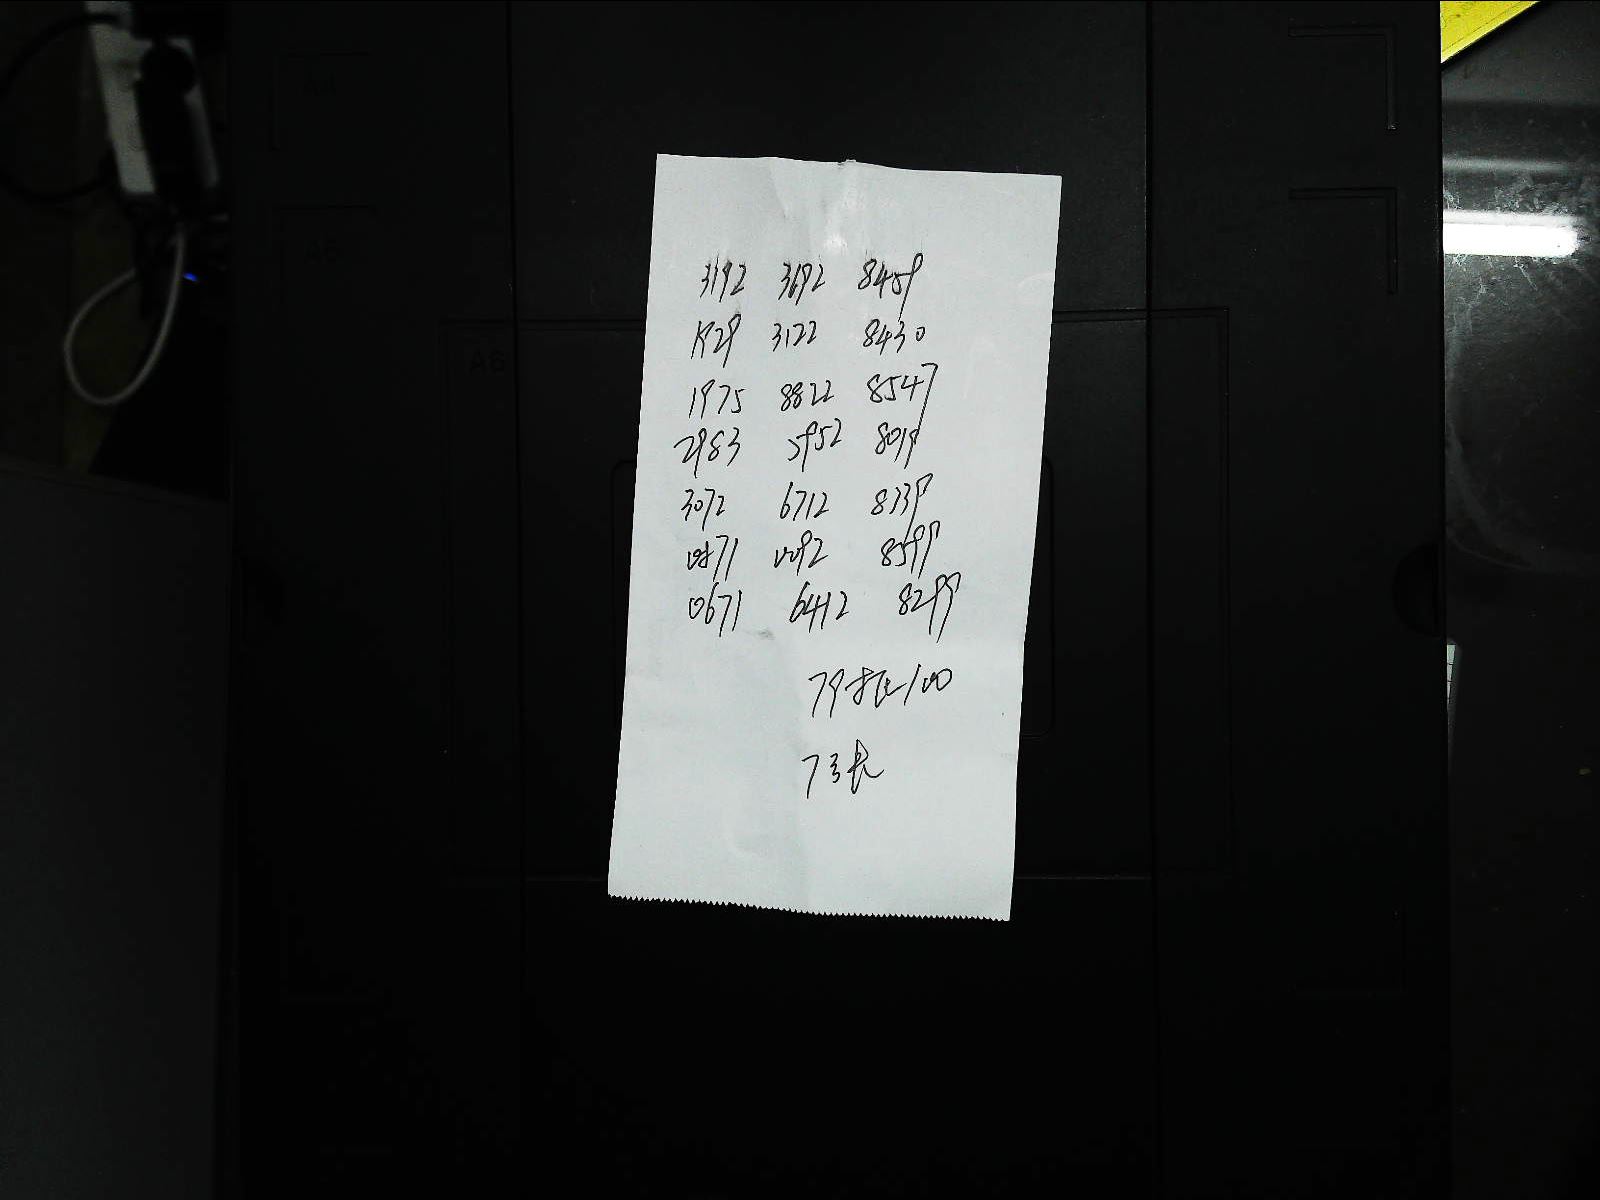 3192 3692 8459
1829 3122 8430
1975 8822 8547
2983 5952 8019
3072 6712 8339
0871 0092 8599
0671 6412 8299
79 100
长
A6
A6